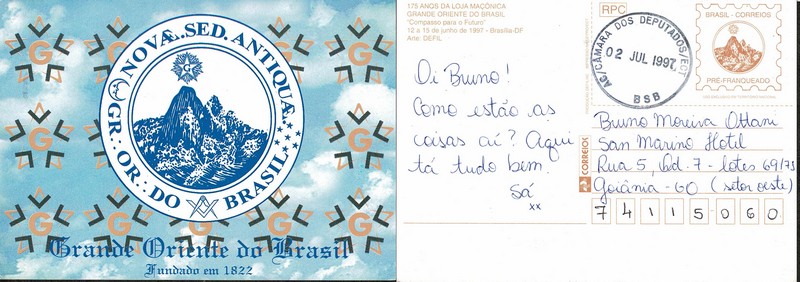 NOVÆ. SED. ANTIQUÆ.
GR∴ OR∴ DO BRASIL
G
G
G
G
G
G
G
G
G
G
Grande Oriente do Brasil
Fundado em 1822
175 ANOS DA LOJA MAÇÔNICA
GRANDE ORIENTE DO BRASIL
"Compasso para o Futuro"
12 a 15 de junho de 1997 - Brasília-DF
Arte: DEFIL
RPC
AC/CÂMARA DOS DEPUTADOS/ECT
02 JUL 1997
BSB
BRASIL - CORREIOS
PRÉ-FRANQUEADO
Oi Bruno!
Como estão as
coisas aí? Aqui
tá tudo bem.
Sá
xx
CORREIOS
Bruno Moreira Ottani
San Marino Hotil
Rua 5, Qd-7-lotes 69/73
Goiânia-GO (setor oeste)
74115060